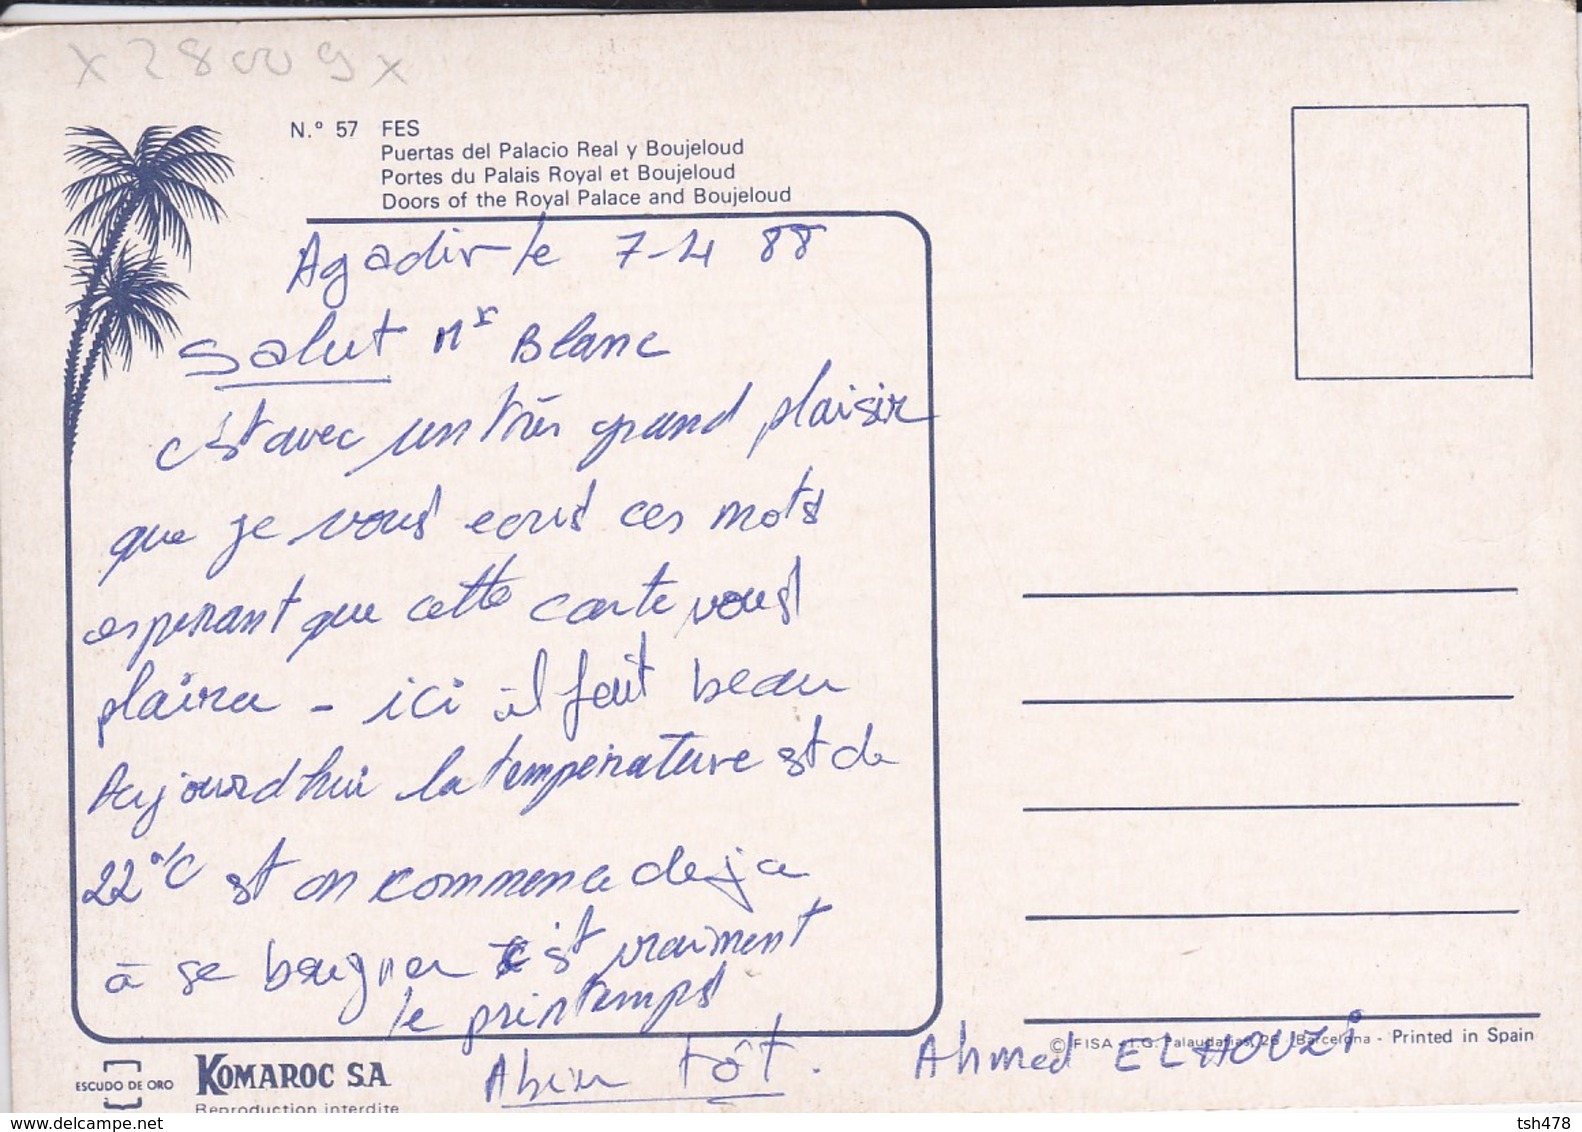 x 28009 x
N.º 57 FES
Puertas del Palacio Real y Boujeloud
Portes du Palais Royal et Boujeloud
Doors of the Royal Palace and Boujeloud
Agadir le 7-4 88
Salut Mr Blanc
c'st avec un très grand plaisir
que je vous ecris ces mots
esperant que cette carte vous
plaira - ici il fait beau
Aujourd hui la température st de
22°C st on commence deja
à se baigner c'st vraiment
le printemps
Abien tôt.
Ahmed ELHOUZI
© FISA - I.G. Palaudarias, 26 - Barcelona - Printed in Spain
ESCUDO DE ORO
KOMAROC S.A.
Reproduction interdite
www.delcampe.net
tsh478